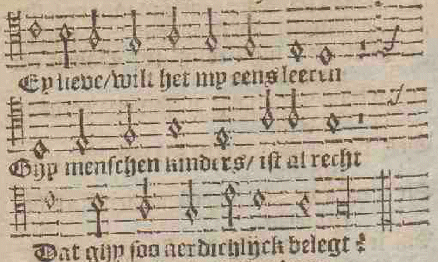 Ey lieve/wilt het my eens leeren
Ghy menschen kinders/ ist al recht
Dat ghy soo aerdichlijck belegt?